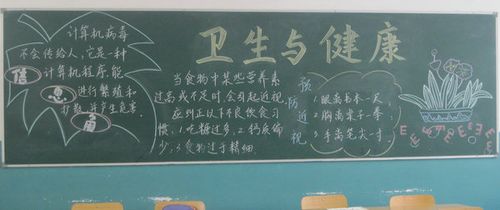 卫生与健康
计算机病毒
不会传给人,它是一种
计算机程序,能
进行繁殖和
扩散,并产生危害.
信
息
角
当食物中某些营养素
过高或不足时,会引起近视,
应纠正以下不良饮食习
惯:1.吃糖过多.2.钙质偏
少.3.食物过于精细.
预
防近
视
1.眼离书本一尺;
2.胸离桌子一拳;
3.手离笔尖一寸.